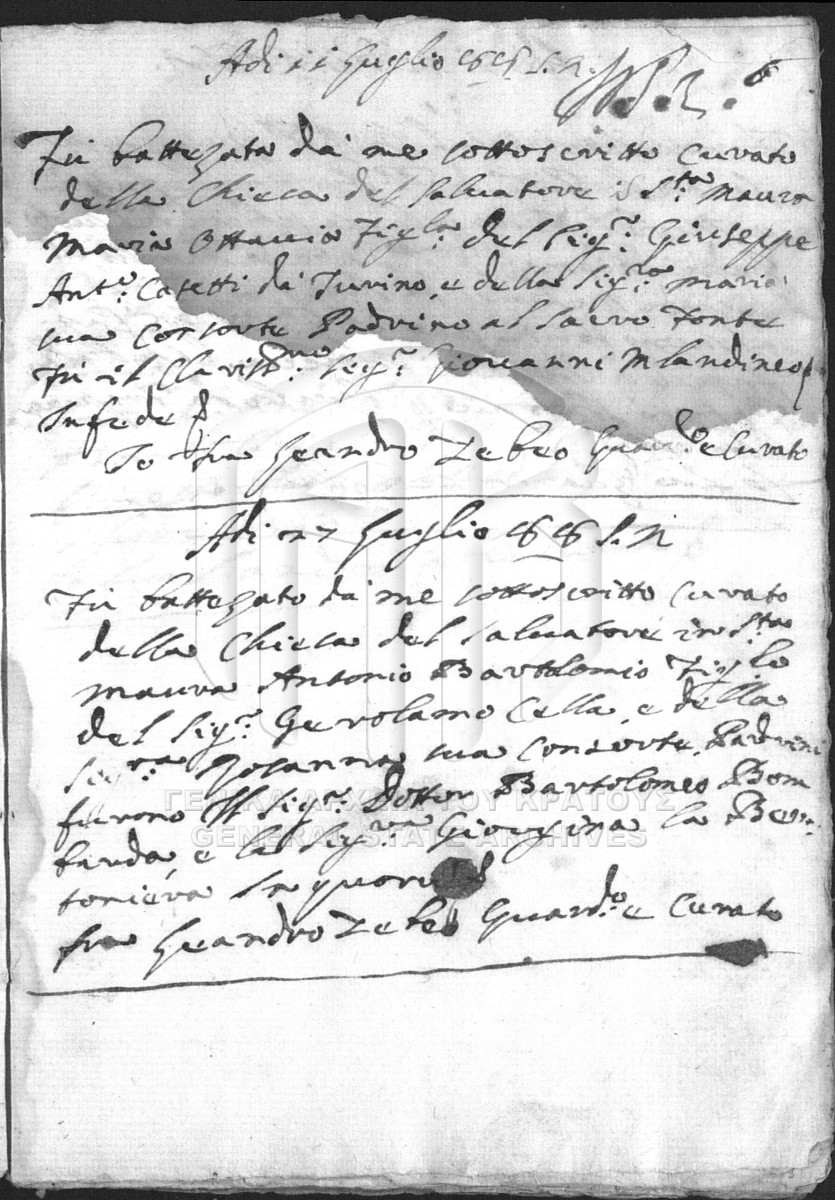 Adi 11 Luglio S. N.
Fù battezata da me sottoscritto Curato
della Chiesa del Salvatore S.ta Maura
Maria Ottavia Figla. del Sigr. Giuseppe
Ant.o Casetti da Turino, e della Sigra. Maria
sua Consorte Padrino al sacro Fonte
Fù il Clariss.mo Sigr. Giovanni
In fede
Io Fra Leandro Zebeo Guard.o e Curato
Adi 27 Luglio S. N
Fù battezato da me sottoscritto Curato
della Chiesa del Salvatore in S.ta
Maura Antonio Bartolomio Figlo
del Sigr. Gerolamo Cella, e della
Sigra. Rosanna sua Consorte, Padrini
furono Il Sigr. Dottor Bartolomeo Bom
barda, e la Sigra. Giorgina la Ber
toniera In quoru
fra Leandro Zebeo Guard.o e Curato
ΓΕΝΙΚΑ ΑΡΧΕΙΑ ΤΟΥ ΚΡΑΤΟΥΣ
GENERAL STATE ARCHIVES